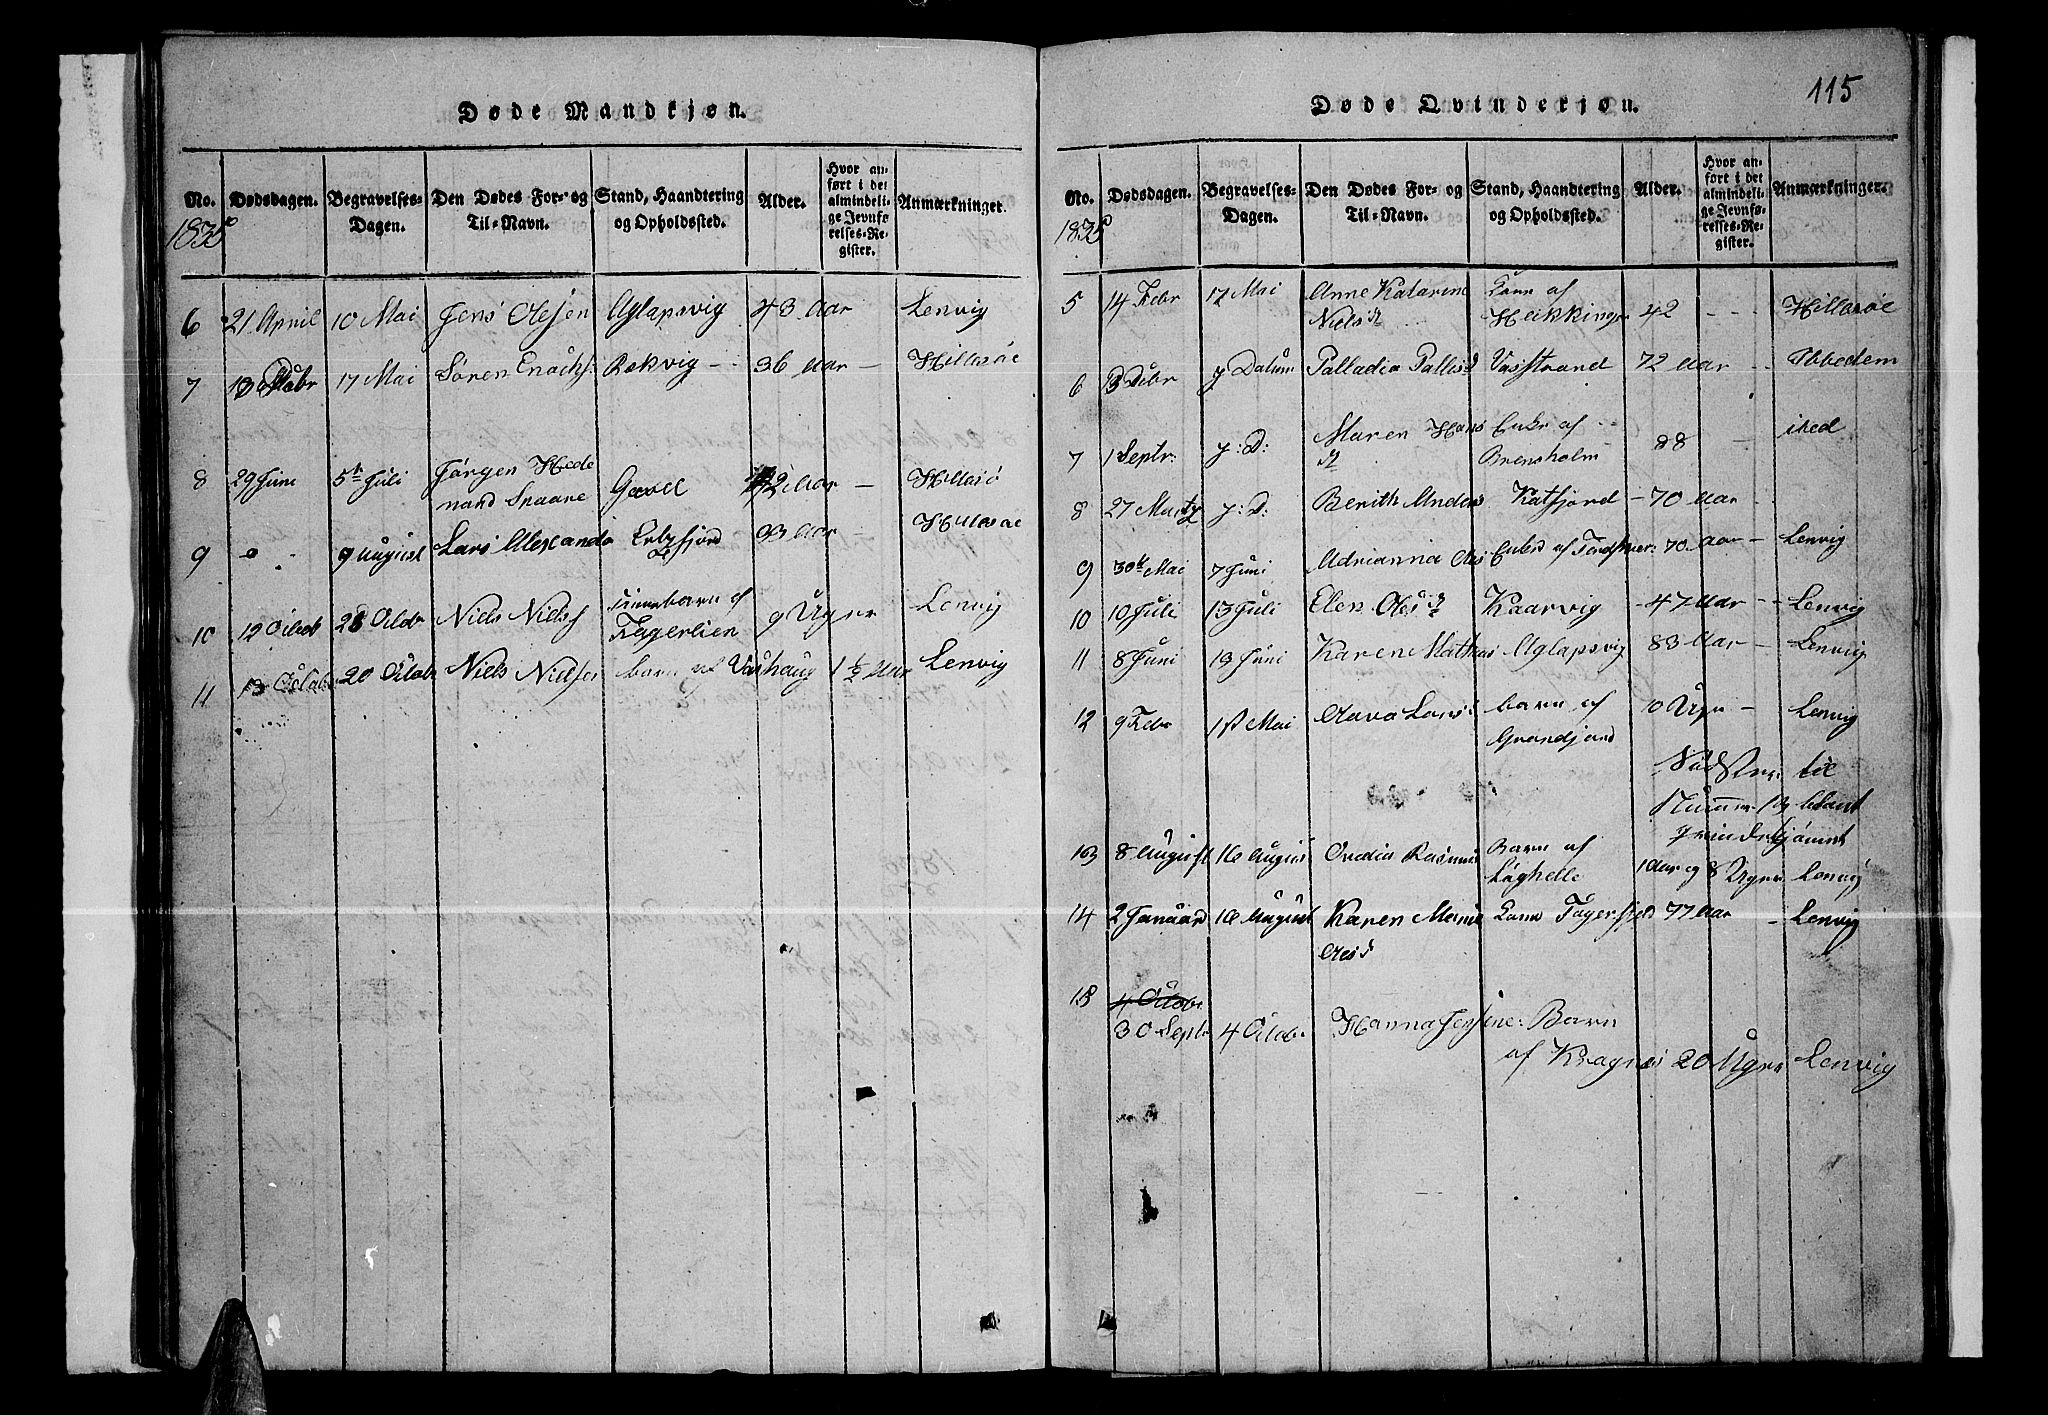 Døde Mandkjøn.
No. Dødsdagen. Begravelses-Dagen. Den Dødes For- og Til-Navn. Stand, Haandtering og Opholdssted. Alder. Hvor anført i det almindelige Jevnførelses-Register. Anmærkninger.
1835
6 21 April 10 Mai Jens Olesen Aglapsvig 43 Aar Lenvig
7 17 Mai Søren Enochs: Rekvig - - 36 Aar - Hillesøe
8 29 Juni 5te Juli Jørgen Hede
nard Snaare Gaard 2 Aar - Hillesø
9 9 August Lars Alexand Erbsfjord 33 Aar - Hillesøe
10 12 Octob 28 Octbr Niels Niels Finnebarn af
Fagerlien 9 Uger Lenvig
11 13 Octobr 20 Octobr Niels Nielsen barn af Vashaug 1 1/2 Aar Lenvig
115
Døde Qvindekjøn.
No. Dødsdagen. Begravelses-Dagen. Den Dødes For- og Til-Navn. Stand, Haandtering og Opholdssted. Alder. Hvor anført i det almindelige Jevnførelses-Register. Anmærkninger.
1835
5 14 Febr 17 Mai Anne Katarine
Nielsd af
Hekkingen 42 - - - Hillesøe
6 y Datum Palladia Pallesd Vasstrand 72 Aar - - Ibbedem
7 1 Septr: y: D: Maren Hans
d Enke af - -
Brensholm 88 - ibed
8 27 Martz y: D: Berith Anders Katfjord - 70 Aar -
9 30te Mai 7 Juni Adrianna Oles Enke af 70 Aar - Lenvig
10 10 Juli 13 Juli Elen Olesd Kaarvig - 47 Aar - - Lenvig
11 8 Juni 19 Juni Karen Mathias Aglapsvig 83 Aar - Lenvig
12 9 Febr Mai Lars barn af
Grandjord 10 Uger - Lenvig
til
blant
13 8 August 16 August Ovedia Rasmus Barn af
Laghelle 1 Aar og 8 Uger Lenvig
14 2 Januar 16 August Karen
Olesd 77 Aar - Lenvig
15 4 Octobr
30 Septr 4 Octobr Hanna Jensine: Barn
af Kragnes 20 Uger Lenvig